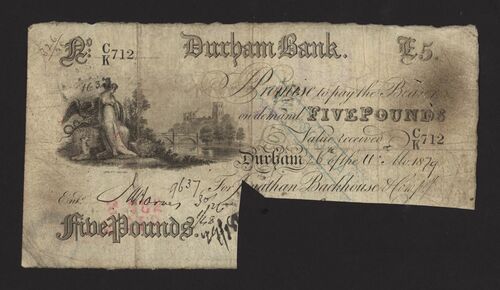 No: C/K 712 Durham Bank. £5.
Promise to pay the Bearer
on demand FIVE POUNDS
Value received C/K 712
Durham 6th of the 11th Mo. 1879
For Jonathan Backhouse & Co.
Entd.
7637
30
126
Five Pounds.